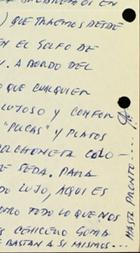 ) QUE TRAEMOS DESDE
EN EL GOLFO DE
. A BORDO DEL
O QUE CUALQUIER
LUJOSO Y CONFOR
"PULGAS" Y PLATOS
COLCHONETA COLO-
DE SEDA. PARA
DO LUJO, AQUI ES
TODO LO QUE NOS
CENICERO
BASTAN A SI MISMOS...
HASTA PRONTO....